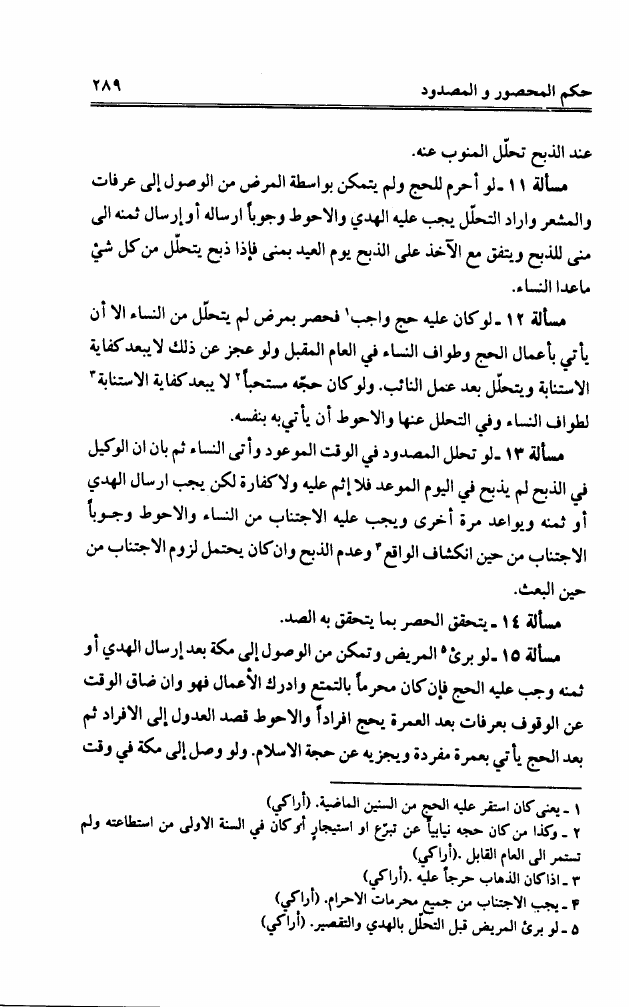 حكم المحصور و المصدود
٢٨٩
عند الذبح تحلّل المنوب عنه.
مسألة ١١ ـ لو أحرم للحج ولم يتمكن بواسطة المرض من الوصول إلى عرفات
والمشعر واراد التحلّل يجب عليه الهدي والاحوط وجوباً ارساله أو إرسال ثمنه الى
منى للذبح ويتفق مع الآخذ على الذبح يوم العيد بمنى فإذا ذبح يتحلّل من كل شئ
ماعدا النساء.
مسألة ١٢ ـ لو كان عليه حج واجب¹ فحصر بمرض لم يتحلّل من النساء الا أن
يأتي بأعمال الحج وطواف النساء في العام المقبل ولو عجز عن ذلك لايبعد كفاية
الاستنابة ويتحلّل بعد عمل النائب. ولو كان حجّه مستحباً² لا يبعد كفاية الاستنابة³
لطواف النساء وفي التحلل عنها والاحوط أن يأتي به بنفسه.
مسألة ١٣ ـ لو تحلل المصدود في الوقت الموعود وأتى النساء ثم بان ان الوكيل
في الذبح لم يذبح في اليوم الموعد فلا إثم عليه ولاكفارة لكن يجب ارسال الهدي
أو ثمنه ويواعد مرة أخرى ويجب عليه الاجتناب من النساء والاحوط وجـوباً
الاجتناب من حين انكشاف الواقع⁴ وعدم الذبح وان كان يحتمل لزوم الاجتناب من
حين البعث.
مسألة ١٤ ـ يتحقق الحصر بما يتحقق به الصد.
مسألة ١٥ ـ لو برئ⁵ المريض وتمكن من الوصول إلى مكة بعد إرسال الهدي أو
ثمنه وجب عليه الحج فإن كان محرماً بالتمتع وادرك الأعمال فهو وان ضاق الوقت
عن الوقوف بعرفات بعد العمرة يحج افراداً والاحوط قصد العدول إلى الافراد ثم
بعد الحج يأتي بعمرة مفردة ويجزيه عن حجة الاسلام. ولو وصل إلى مكة في وقت
١ ـ يعنى كان استقر عليه الحج من السنين الماضية. (أراكي)
٢ ـ وكذا من كان حجه نيابياً عن تبرّع او استيجارٍ أو كان في السنة الاولى من استطاعته ولم
تستمر الى العام القابل .(أراكي)
٣ ـ اذا كان الذهاب حرجاً عليه .(أراكي)
۴ ـ يجب الاجتناب من جميع محرمات الاحرام. (أراكي)
۵ ـ لو برئ المريض قبل التحلّل بالهدي والتقصير. (أراكي)